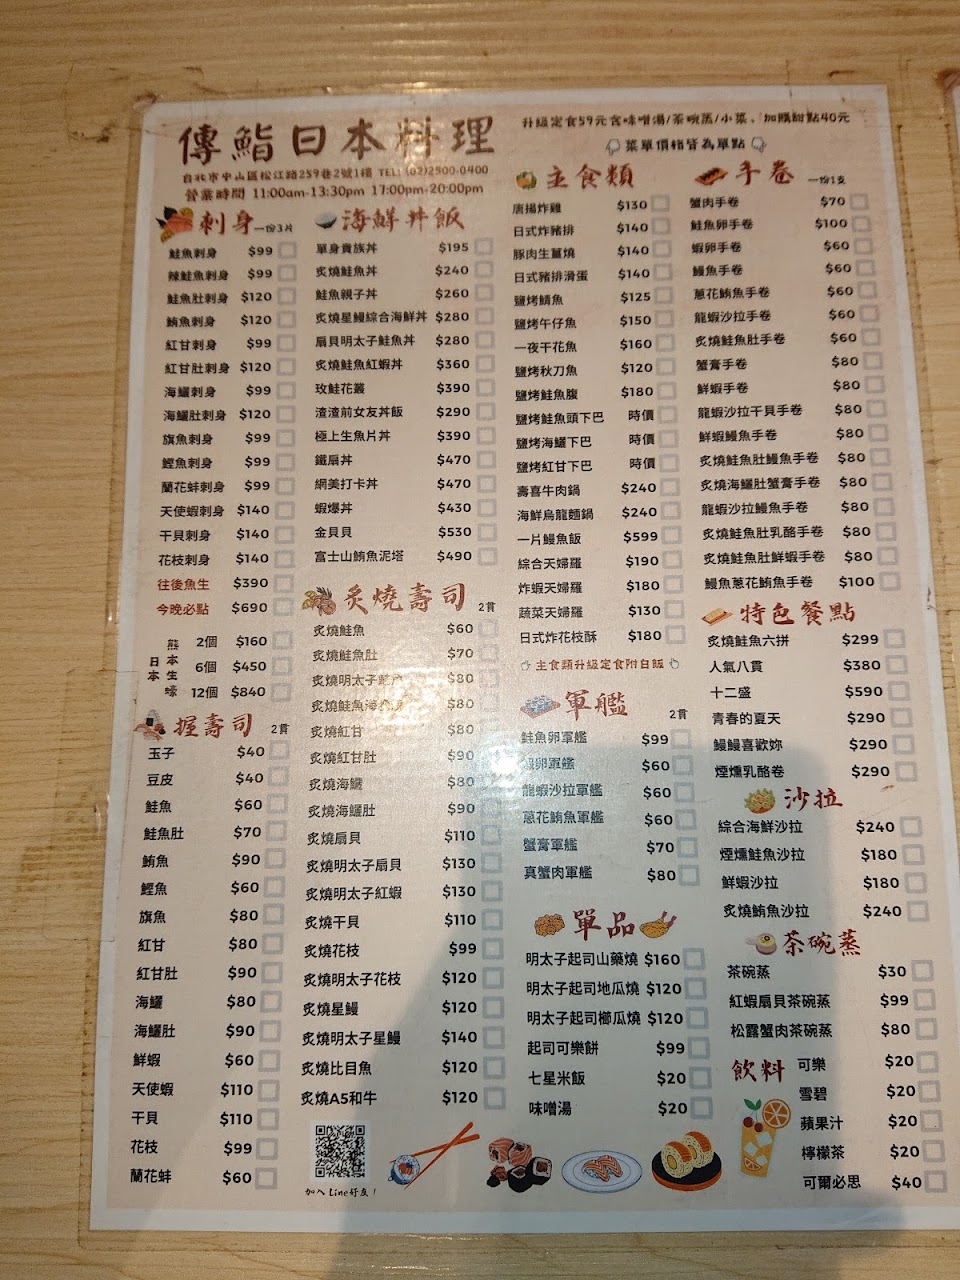 傳鮨日本料理
台北市中山區松江路259巷2號1樓 TEL: (02)2500-0400
營業時間 11:00am-13:30pm 17:00pm-20:00pm
升級定食59元含味噌湯/茶碗蒸/小菜、加購甜點40元
菜單價格皆為單點
刺身 一份3片
鮭魚刺身 $99
辣鮭魚刺身 $99
鮭魚肚刺身 $120
鮪魚刺身 $120
紅甘刺身 $99
紅甘肚刺身 $120
海鱺刺身 $99
海鱺肚刺身 $120
旗魚刺身 $99
鰹魚刺身 $99
蘭花蚌刺身 $99
天使蝦刺身 $140
干貝刺身 $140
花枝刺身 $140
往後魚生 $390
今晚必點 $690
日本熊本生蠔
2個 $160
6個 $450
12個 $840
握壽司 2貫
玉子 $40
豆皮 $40
鮭魚 $60
鮭魚肚 $70
鮪魚 $90
鰹魚 $60
旗魚 $80
紅甘 $80
紅甘肚 $90
海鱺 $80
海鱺肚 $90
鮮蝦 $60
天使蝦 $110
干貝 $110
花枝 $99
蘭花蚌 $60
海鮮丼飯
單身貴族丼 $195
炙燒鮭魚丼 $240
鮭魚親子丼 $260
炙燒星鰻綜合海鮮丼 $280
扇貝明太子鮭魚丼 $280
炙燒鮭魚紅蝦丼 $360
玫鮭花叢 $390
渣渣前女友丼飯 $290
極上生魚片丼 $390
鐵扇丼 $470
網美打卡丼 $470
蝦爆丼 $430
金貝貝 $530
富士山鮪魚泥塔 $490
炙燒壽司 2貫
炙燒鮭魚 $60
炙燒鮭魚肚 $70
炙燒明太子鮭魚 $80
炙燒鮭魚 $80
炙燒紅甘 $80
炙燒紅甘肚 $90
炙燒海鱺 $80
炙燒海鱺肚 $90
炙燒扇貝 $110
炙燒明太子扇貝 $130
炙燒明太子紅蝦 $130
炙燒干貝 $110
炙燒花枝 $99
炙燒明太子花枝 $120
炙燒星鰻 $120
炙燒明太子星鰻 $140
炙燒比目魚 $120
炙燒A5和牛 $120
加入Line好友!
主食類
唐揚炸雞 $130
日式炸豬排 $140
豚肉生薑燒 $140
日式豬排滑蛋 $140
鹽烤鯖魚 $125
鹽烤午仔魚 $150
一夜干花魚 $160
鹽烤秋刀魚 $120
鹽烤鮭魚腹 $180
鹽烤鮭魚頭下巴 時價
鹽烤海鱺下巴 時價
鹽烤紅甘下巴 時價
壽喜牛肉鍋 $240
海鮮烏龍麵鍋 $240
一片鰻魚飯 $599
綜合天婦羅 $190
炸蝦天婦羅 $180
蔬菜天婦羅 $130
日式炸花枝酥 $180
主食類升級定食附白飯
軍艦 2貫
鮭魚卵軍艦 $99
蝦卵軍艦 $60
龍蝦沙拉軍艦 $60
蔥花鮪魚軍艦 $60
蟹膏軍艦 $70
真蟹肉軍艦 $80
單品
明太子起司山藥燒 $160
明太子起司地瓜燒 $120
明太子起司櫛瓜燒 $120
起司可樂餅 $99
七星米飯 $20
味噌湯 $20
手卷 一份1支
蟹肉手卷 $70
鮭魚卵手卷 $100
蝦卵手卷 $60
鰻魚手卷 $60
蔥花鮪魚手卷 $60
龍蝦沙拉手卷 $60
炙燒鮭魚肚手卷 $60
蟹膏手卷 $80
鮮蝦手卷 $80
龍蝦沙拉干貝手卷 $80
鮮蝦鰻魚手卷 $80
炙燒鮭魚肚鰻魚手卷 $80
炙燒海鱺肚蟹膏手卷 $80
龍蝦沙拉鰻魚手卷 $80
炙燒鮭魚肚乳酪手卷 $80
炙燒鮭魚肚鮮蝦手卷 $80
鰻魚蔥花鮪魚手卷 $100
特色餐點
炙燒鮭魚六拼 $299
人氣八貫 $380
十二盛 $590
青春的夏天 $290
鰻鰻喜歡妳 $290
煙燻乳酪卷 $290
沙拉
綜合海鮮沙拉 $240
煙燻鮭魚沙拉 $180
鮮蝦沙拉 $180
炙燒鮪魚沙拉 $240
茶碗蒸
茶碗蒸 $30
紅蝦扇貝茶碗蒸 $99
松露蟹肉茶碗蒸 $80
飲料
可樂 $20
雪碧 $20
蘋果汁 $20
檸檬茶 $20
可爾必思 $40